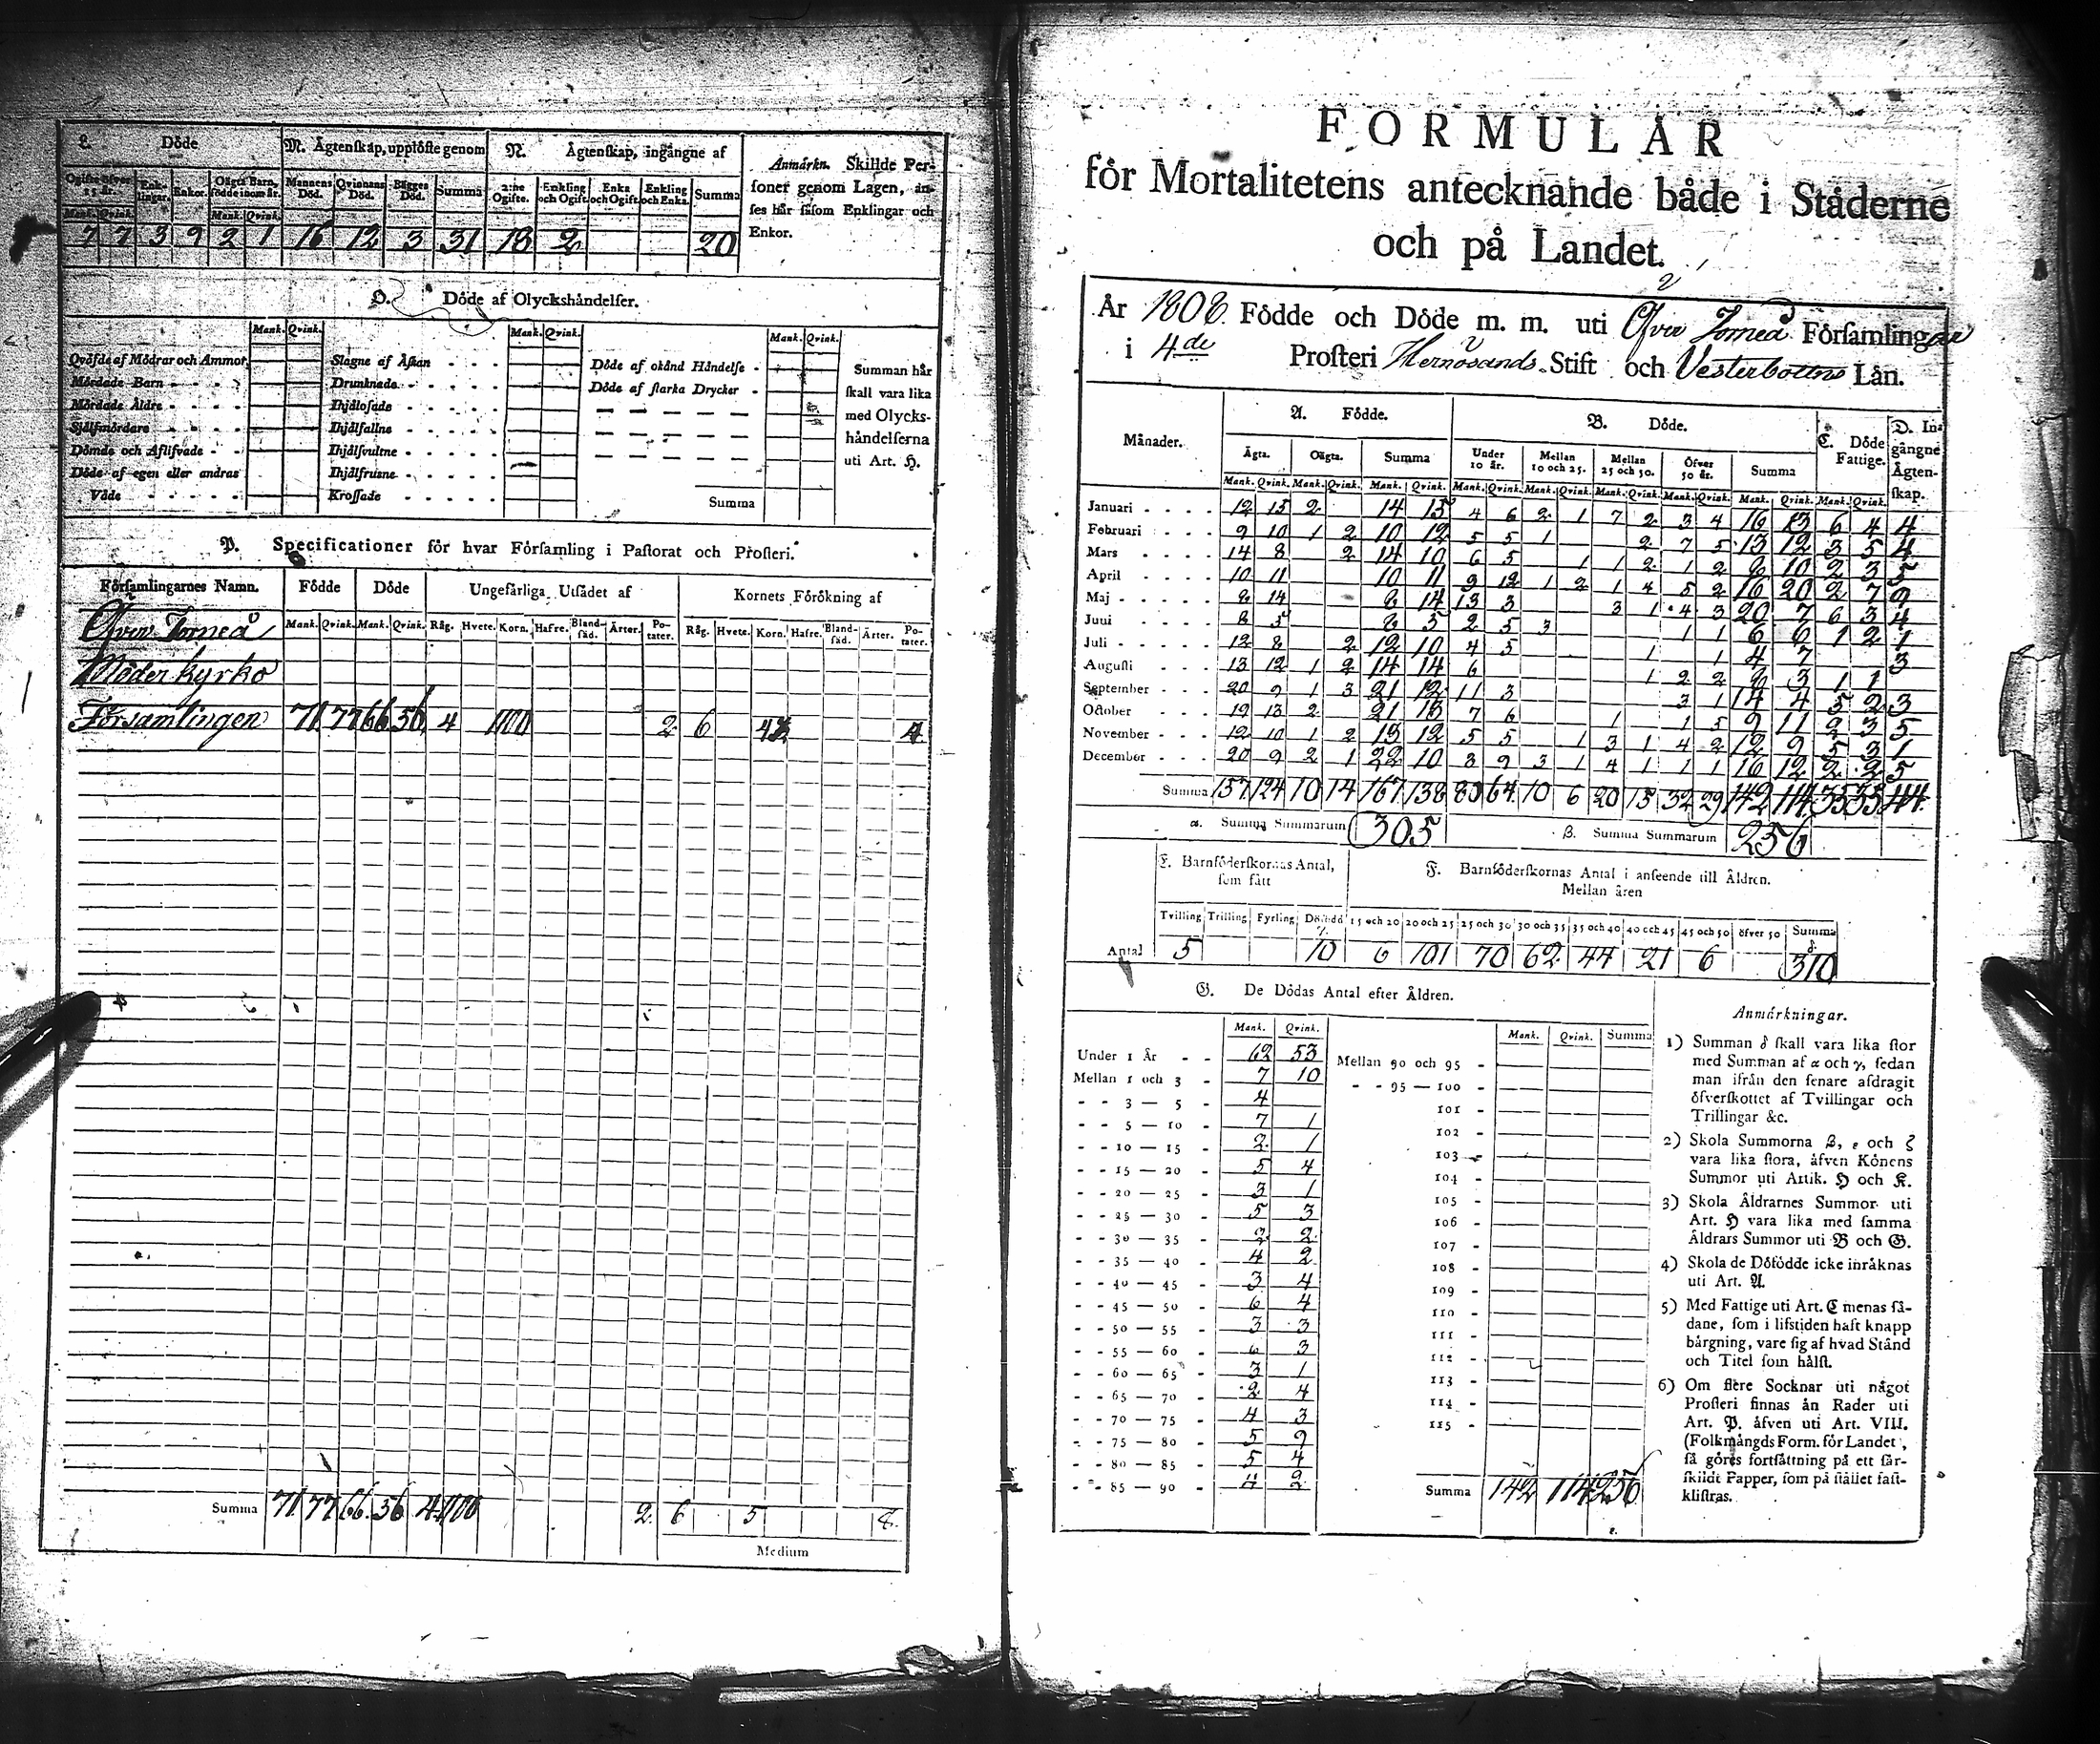 L. Döde
M. Ägtenskap, upplöste genom
N. Ägtenskap, ingångne af
Anmärkn. Skillde Per-
soner genom Lagen, an-
ses här såsom Enklingar och
Enkor.
Ogifte öfver 15 år. Enk-lingar. Enkor. Oägta Barn, födde inom år. Mannens Död. Qvinnans Död. Bägges Död. Summa 2:ne Ogifte. Enkling och Ogift. Enka och Ogift. Enkling och Enka. Summa
Mank. Qvink. Mank. Qvink.
7 7 3 9 2 1 16 12 3 31 18 2 20
O. Döde af Olyckshändelser.
Mank. Qvink. Mank. Qvink. Mank. Qvink.
Qväfde af Mödrar och Ammor
Mördade Barn
Mördade Äldre
Självmördare
Dömde och Aflifvade
Döde af egen eller andras
Våde
Slagne af Åskan
Drunknade
Ihjälosade
Ihjälfallne
Ihjälsvultne
Ihjälfrusne
Krossade
Döde af okänd Händelse
Döde af starka Drycker
Summa
Summan här
skall vara lika
med Olycks-
händelserna
uti Art. H.
P. Specificationer för hvar Församling i Pastorat och Prosteri.
Församlingarnes Namn. Födde Döde Ungefärliga Utsädet af Kornets Förökning af
Mank. Qvink. Mank. Qvink. Råg. Hvete. Korn. Hafre. Bland-säd. Ärter. Po-tater. Råg. Hvete. Korn. Hafre. Bland-säd. Ärter. Po-tater.
Öfver Torneå
Moder kyrko
Församlingen 71 77 66 56 4 1100 2 6
Summa 71 77 66 56 4 1100 2 6 5 8
Medium
FORMULÄR
för Mortalitetens antecknande både i Städerne
och på Landet.
År 1808 Födde och Döde m. m. uti Öfver Torneå Församlingar
i 4de Prosteri Hernösands Stift och Vesterbottns Län.
Månader. A. Födde. B. Döde. C. Döde Fattige. D. In-gångne Ägten-skap.
Ägta. Oägta. Summa Under 10 år. Mellan 10 och 25. Mellan 25 och 50. Öfver 50 år. Summa
Mank. Qvink. Mank. Qvink. Mank. Qvink. Mank. Qvink. Mank. Qvink. Mank. Qvink. Mank. Qvink. Mank. Qvink. Mank. Qvink.
Januari 12 15 2 14 15 4 6 2 1 7 2 3 4 16 13 6 4 4
Februari 9 10 1 2 10 12 5 5 1 2 7 5 13 12 3 5 4
Mars 14 8 2 14 10 6 5 1 1 2 1 2 8 10 2 3 5
April 10 11 10 11 9 12 1 2 1 4 5 2 16 20 2 7 9
Maj 8 14 8 14 13 3 3 1 4 3 20 7 6 3 4
Juni 8 5 8 5 2 5 3 1 1 6 6 1 2 1
Juli 12 8 2 12 10 4 5 1 1 4 7 3
Augusti 13 12 1 2 14 14 6 1 2 2 8 3 1 1
September 20 9 1 3 21 12 11 3 3 1 14 4 5 2 3
October 19 13 2 21 13 7 6 1 1 5 9 11 2 3 5
November 12 10 1 2 13 12 5 5 1 3 1 4 2 12 9 5 3 1
December 20 9 2 1 22 10 8 9 3 1 4 1 1 1 16 12 2 2 5
Summa 157 124 10 14 167 138 80 64 10 6 20 15 32 29 142 114 35 35 44
α. Summa Summarum 305
β. Summa Summarum 256
E. Barnföderskornas Antal,
som fått
F. Barnföderskornas Antal i anseende till Åldren.
Mellan åren
Tvilling Trilling Fyrling Dödfödd 15 och 20 20 och 25 25 och 30 30 och 35 35 och 40 40 och 45 45 och 50 öfver 50 Summa
γ. δ.
Antal 5 10 6 101 70 62 44 21 6 310
G. De Dödas Antal efter Åldren.
Mank. Qvink. Mank. Qvink. Summa
Under 1 År 62 53
Mellan 1 och 3 7 10
3 — 5 4
5 — 10 7 1
10 — 15 2 1
15 — 20 5 4
20 — 25 3 1
25 — 30 5 3
30 — 35 2 2
35 — 40 4 2
40 — 45 3 4
45 — 50 6 4
50 — 55 3 3
55 — 60 6 3
60 — 65 3 1
65 — 70 2 4
70 — 75 4 3
75 — 80 5 9
80 — 85 5 4
85 — 90 4 2
Mellan 90 och 95
95 — 100
101
102
103
104
105
106
107
108
109
110
111
112
113
114
115
Summa 142 114 256
Anmärkningar.
1) Summan δ skall vara lika stor
med Summan af α och γ, sedan
man ifrån den senare afdragit
öfverskottet af Tvillingar och
Trillingar &c.
2) Skola Summorna β, ε och ζ
vara lika stora, äfven Könens
Summor uti Artik. H och K.
3) Skola Åldrarnes Summor uti
Art. H vara lika med samma
Åldrars Summor uti B och G.
4) Skola de Dödfödde icke inräknas
uti Art. A.
5) Med Fattige uti Art. C menas så-
dane, som i lifstiden haft knapp
bärgning, vare sig af hvad Stånd
och Titel som hälst.
6) Om flere Socknar uti något
Prosteri finnas än Rader uti
Art. P. äfven uti Art. VIII.
(Folkmängds Form. för Landet,
så göres fortsättning på ett sär-
skildt Papper, som på stället fast-
klistras.